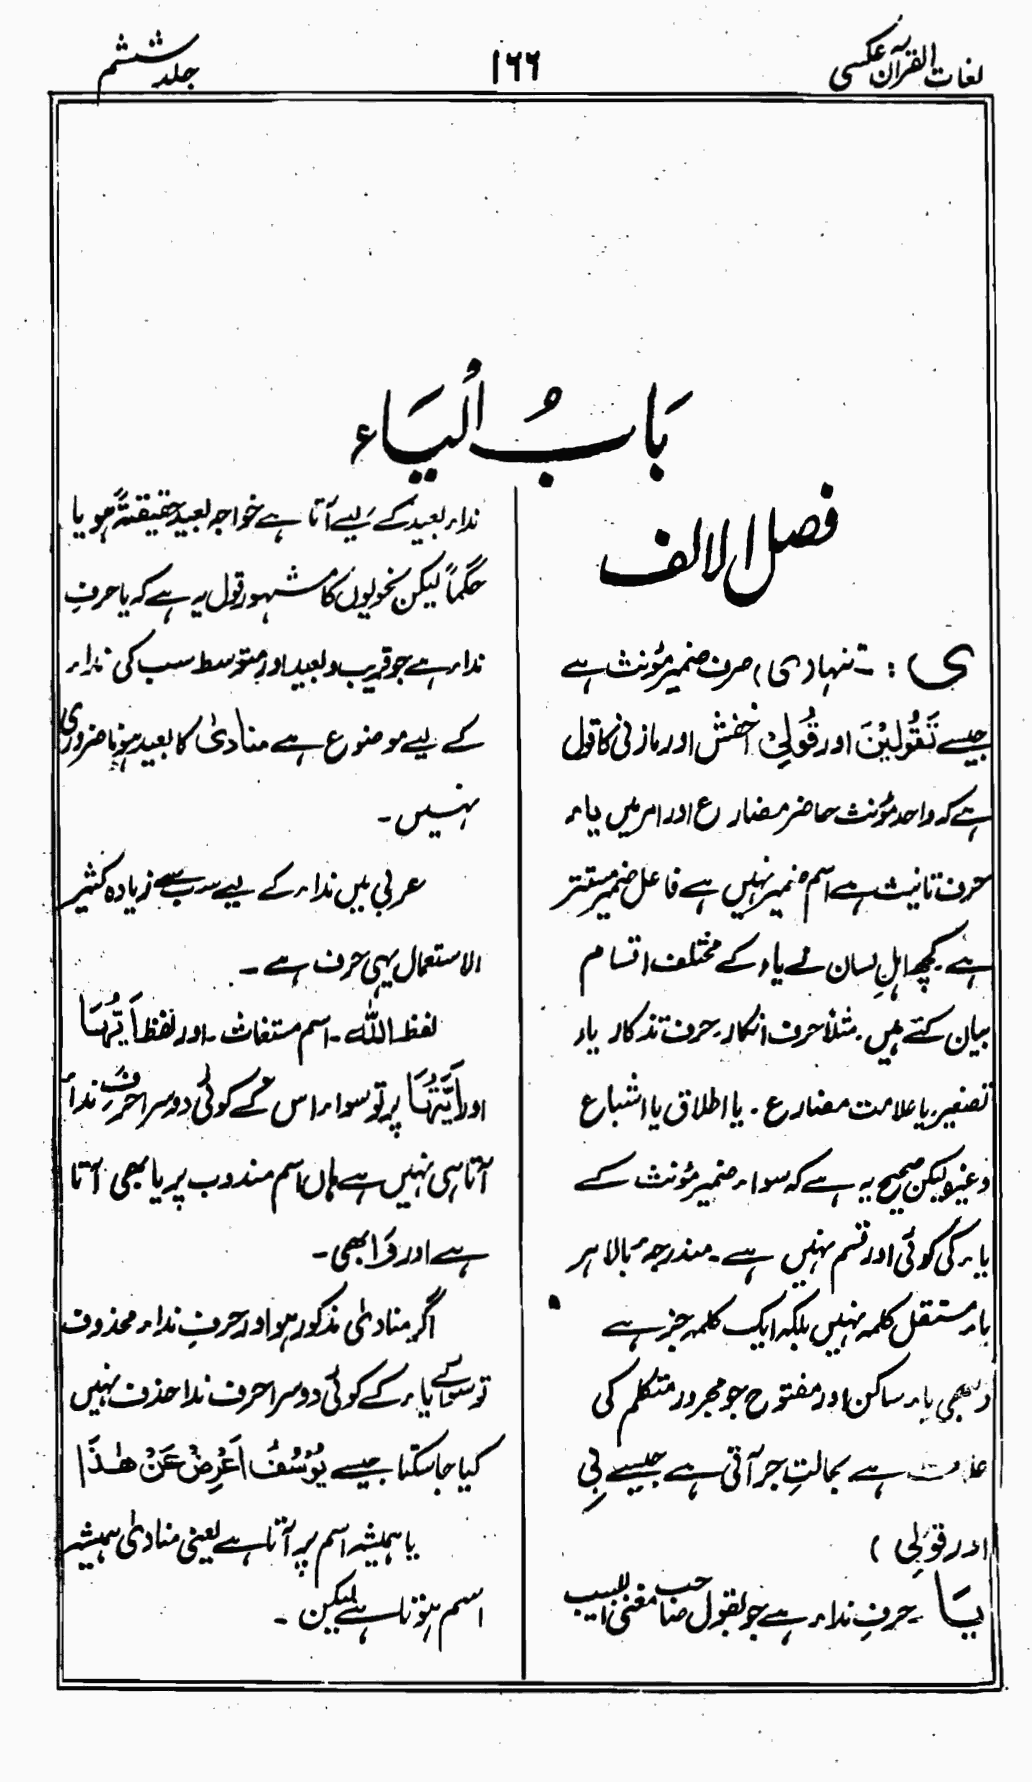 لغات القرآن عکسی
۱۶۶
جلد ششم
بَابُ الْیَاء
فصل الالف
ی : تنہا دی) صرف ضمیر مؤنث ہے
جیسے تَقُولِیْنَ اور قُولِیْ اخفش اور مازنی کا قول
ہے کہ واحد مؤنث حاضر مضارع اور امر میں یاء
حرف تانیث ہے اسم ضمیر نہیں ہے فاعل ضمیر مستتر
ہے کچھ اہلِ لسان نے یاء کے مختلف اقسام
بیان کئے ہیں۔ مثلاً حرف انکار۔ حرف تذکار یاء
تصغیر یا علامت مضارع۔ یا اطلاق یا اشباع
وغیرہ لیکن صحیح یہ ہے کہ سواء ضمیر مؤنث کے
یاء کی کوئی اور قسم نہیں ہے۔ مندرجہ بالا ہر
یاء مستقل کلمہ نہیں بلکہ ایک کلمہ جز ہے
دیکھی یاء ساکن اور مفتوح جو مجرور متکلم کی
علامت ہے بحالتِ جر آتی ہے جیسے بِی
اور قَولِی )
یَا ۔ حرفِ نداء ہے جو بقول صاحب مغنی اللبیب
نداء بعید کے لیے آتا ہے خواہ بعید حقیقتہً ہو یا
حکماً لیکن نحویوں کا مشہور قول یہ ہے کہ یا حرفِ
نداء ہے جو قریب و بعید اور متوسط سب کی نداء
کے لیے موضوع ہے منادیٰ کا بعید ہونا ضروری
نہیں۔
عربی میں نداء کے لیے سب سے زیادہ کثیر
الاستعمال یہی حرف ہے۔
لفظ اللہ ۔ اسم مستغاث ۔ اور لفظ اَیُّہَا
اور اَیَّتُہَا پر تو سواء اس کے کوئی دوسرا حرف نداء
آتا ہی نہیں ہے ہاں اسم مندوب پر یا بھی آتا
ہے اور وَا بھی۔
اگر منادیٰ مذکور ہو اور حرفِ نداء محذوف
تو سوائے یاء کے کوئی دوسرا حرف ندا حذف نہیں
کیا جا سکتا جیسے یُوْسُفُ اَعْرِضْ عَنْ ھٰذَا
یا ہمیشہ اسم پر آتا ہے یعنی منادیٰ ہمیشہ
اسم ہوتا ہے لیکن ۔